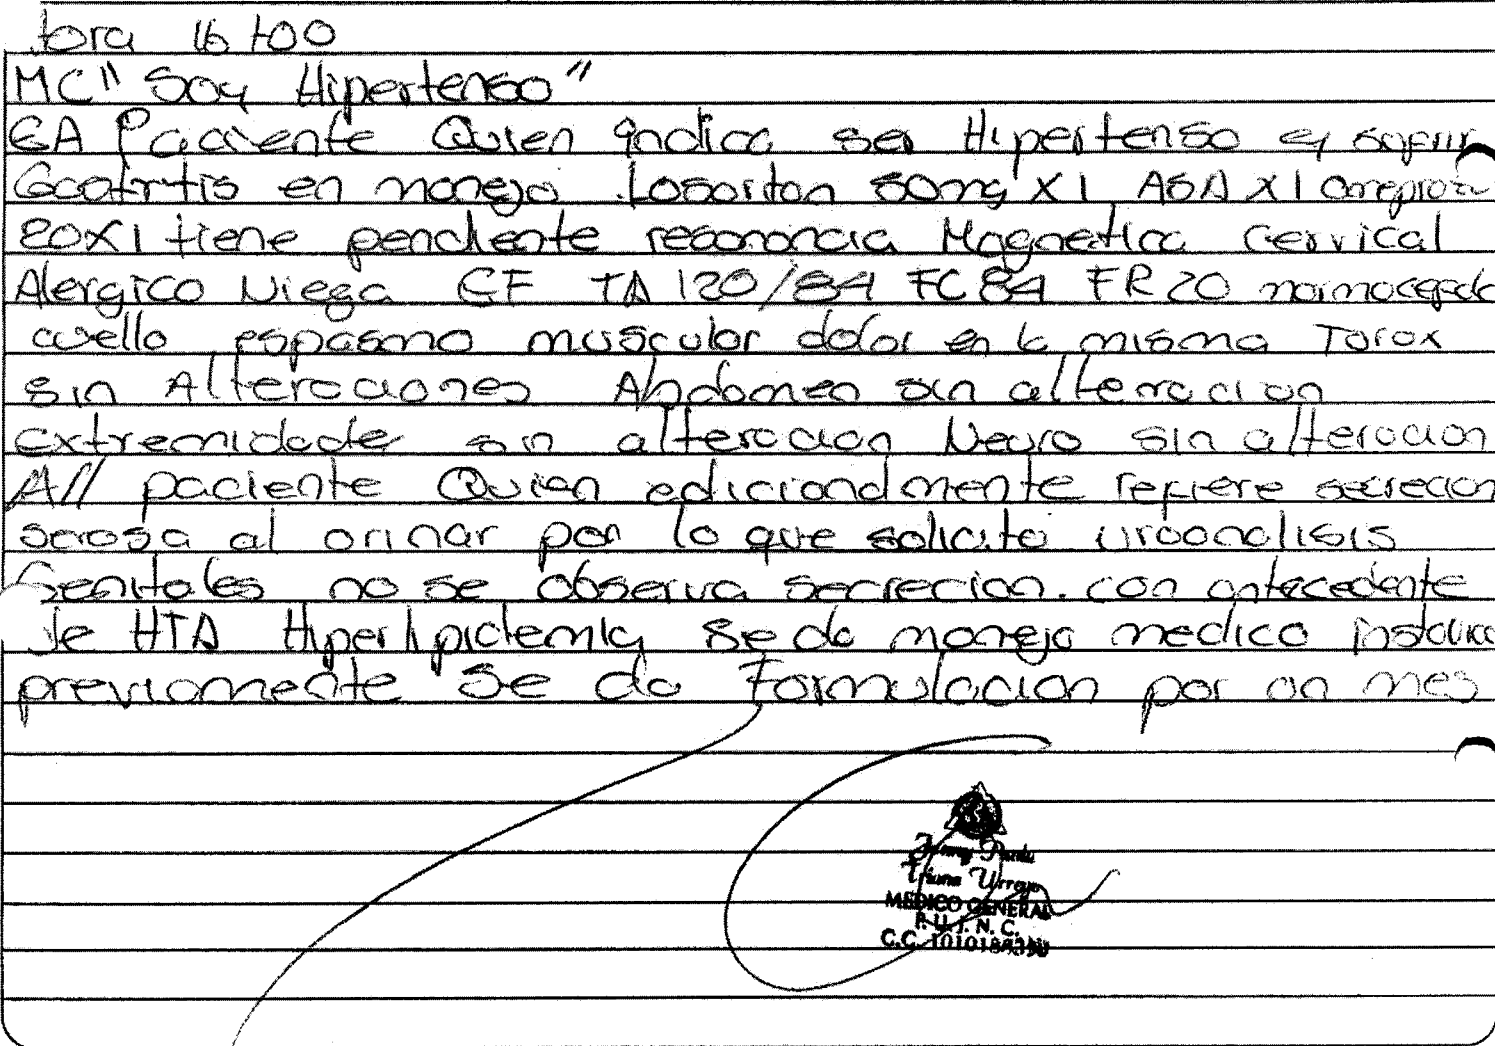 Hora 16+00
MC" Soy Hipertenso"
EA Paciente Quien indica ser Hipertenso y sufrir
Gastritis en manejo Losartan 50mg X1 ASA X1 Omepraz
20X1 tiene pendiente resonancia Magnetica Cervical
Alergico Niega EF TA 120/84 FC 84 FR 20
cuello espasmo muscular dolor en la misma Torox
sin Alteraciones Abdomen sin alteracion
Extremidade sin alteracion Neuro sin alteracion
A// paciente Quien adicionalmente refiere secrecion
serosa al orinar por lo que solicito uroanalisis
Genitales no se observa secrecion. con antecedente
de HTA Hiperlipidemia se da manejo medico
previamente Se da Formulacion por un mes
MEDICO GENERAL
P. U. J. N. C.
C.C.